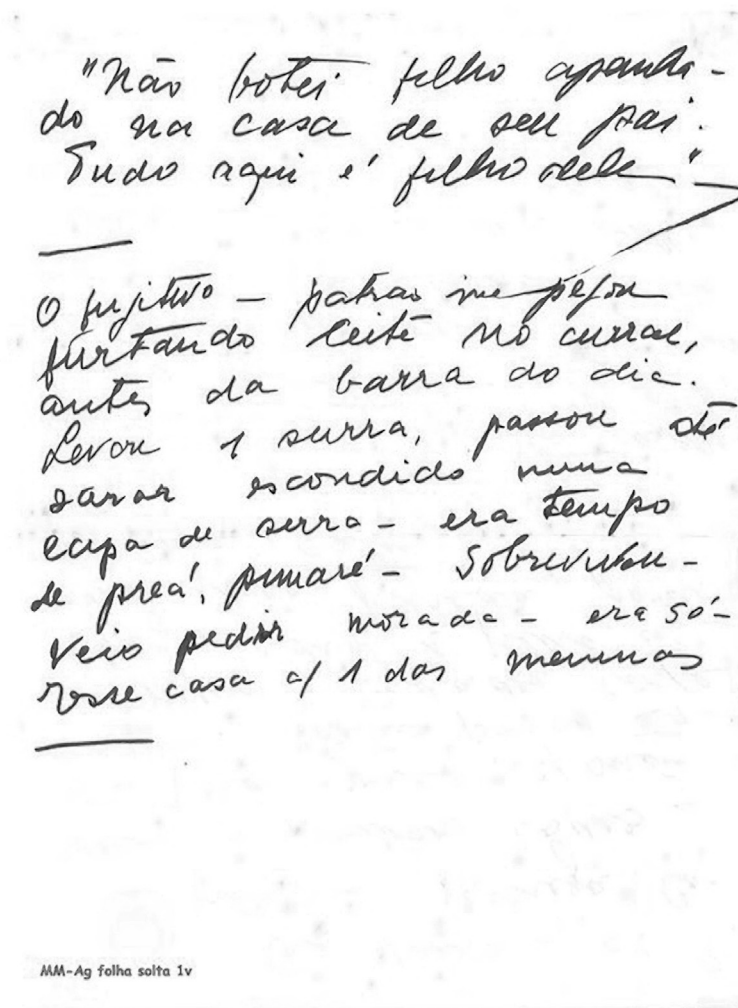 "Não botei filho apanha-
do na casa de seu pai.
Tudo aqui é filho dele"
O fujitivo – patrão me pegou
furtando leite no curral,
antes da barra do dia.
Levou 1 surra, passou até
sarar escondido numa
capa de serra – era tempo
de preá, punaré – Sobreviveu –
Veio pedir morada – era só –
esse casa c/ 1 das meninas
MM-Ag folha solta 1v